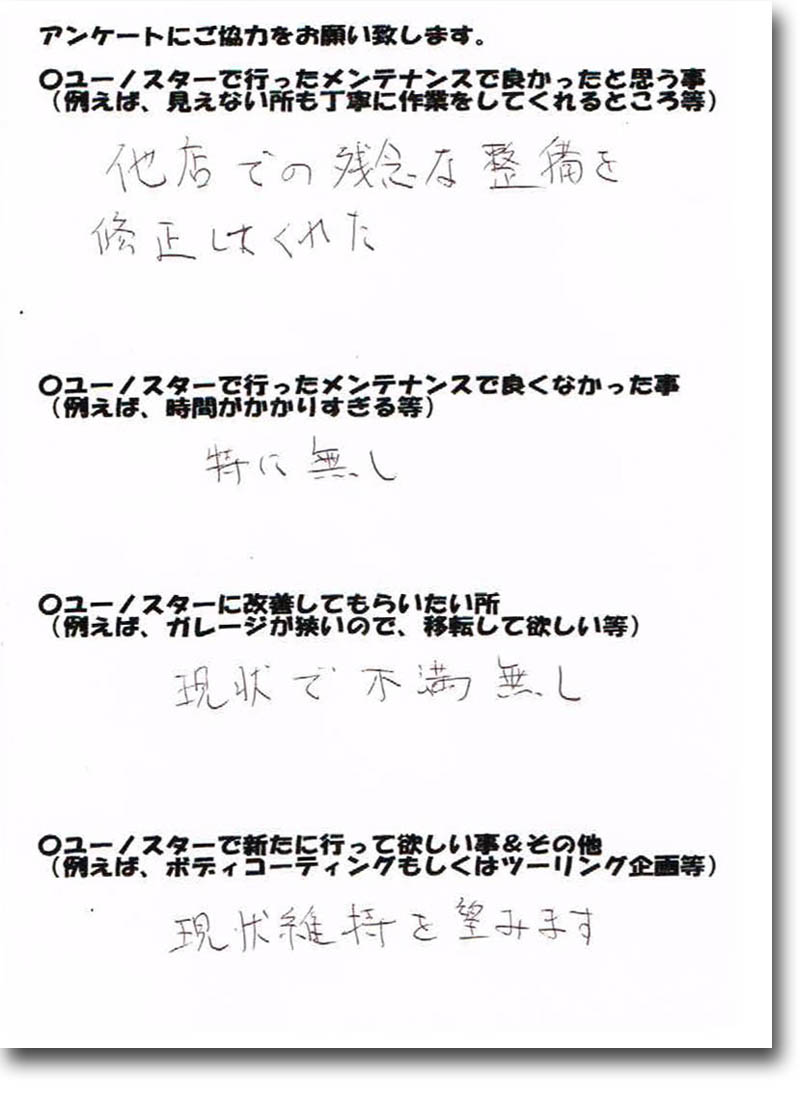 アンケートにご協力をお願い致します。
〇ユーノスターで行ったメンテナンスで良かったと思う事
（例えば、見えない所も丁寧に作業をしてくれるところ等）
他店での残念な整備を
修正してくれた
〇ユーノスターで行ったメンテナンスで良くなかった事
（例えば、時間がかかりすぎる等）
特に無し
〇ユーノスターに改善してもらいたい所
（例えば、ガレージが狭いので、移転して欲しい等）
現状で不満無し
〇ユーノスターで新たに行って欲しい事＆その他
（例えば、ボディコーティングもしくはツーリング企画等）
現状維持を望みます